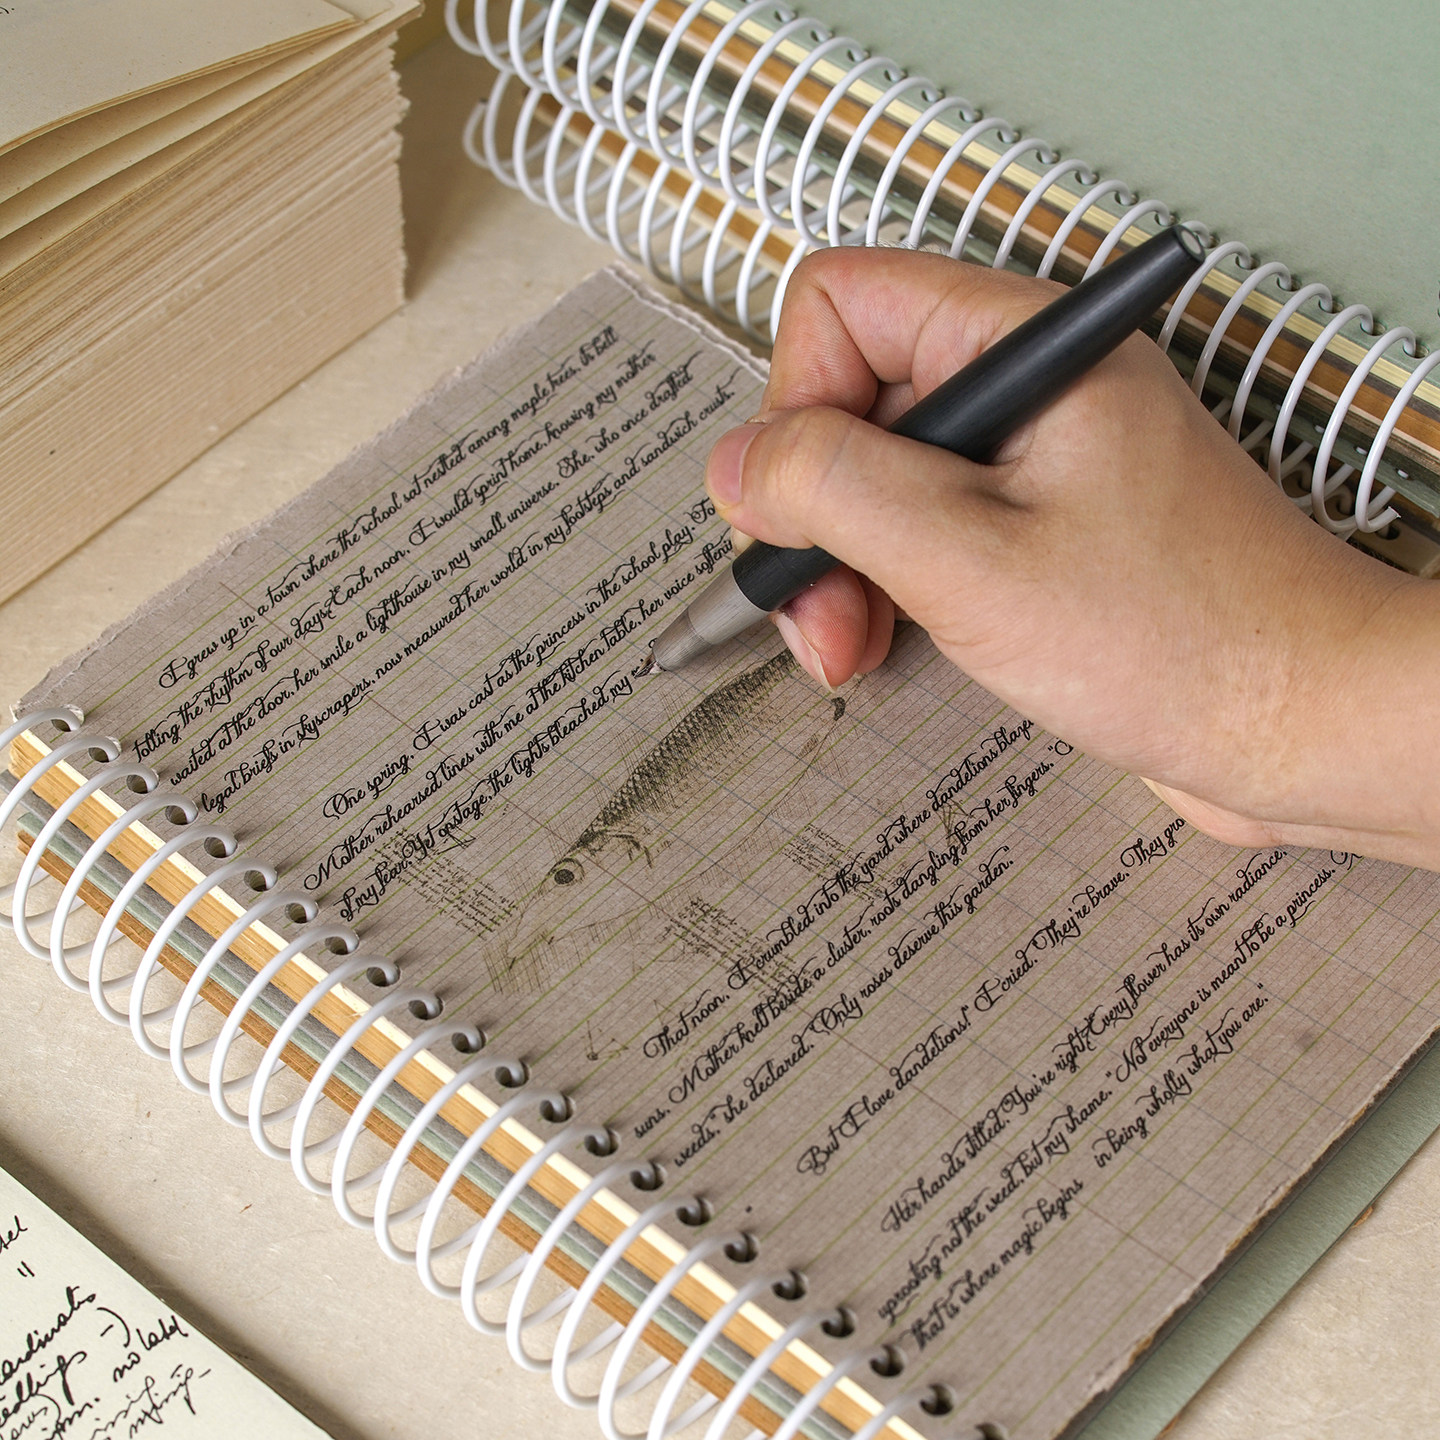 I grew up in a town where the school sat nestled among maple trees, its bell
tolling the rhythm of our days. Each noon, I would sprint home, knowing my mother
waited at the door, her smile a lighthouse in my small universe. She, who once drafted
legal briefs in skyscrapers, now measured her world in my footsteps and sandwich crusts.
One spring, I was cast as the princess in the school play. For
Mother rehearsed lines with me at the kitchen table, her voice softenin
of my fear. Yet onstage, the lights bleached my
That noon, I crumbled into the yard where dandelions blaze
suns. Mother knelt beside a cluster, roots dangling from her fingers. "
weeds," she declared. "Only roses deserve this garden."
"But I love dandelions!" I cried. "They're brave. They gro
Her hands stilled. "You're right. Every flower has its own radiance,
uprooting not the weed, but my shame. "Not everyone is meant to be a princess.
that is where magic begins in being wholly what you are."
no label